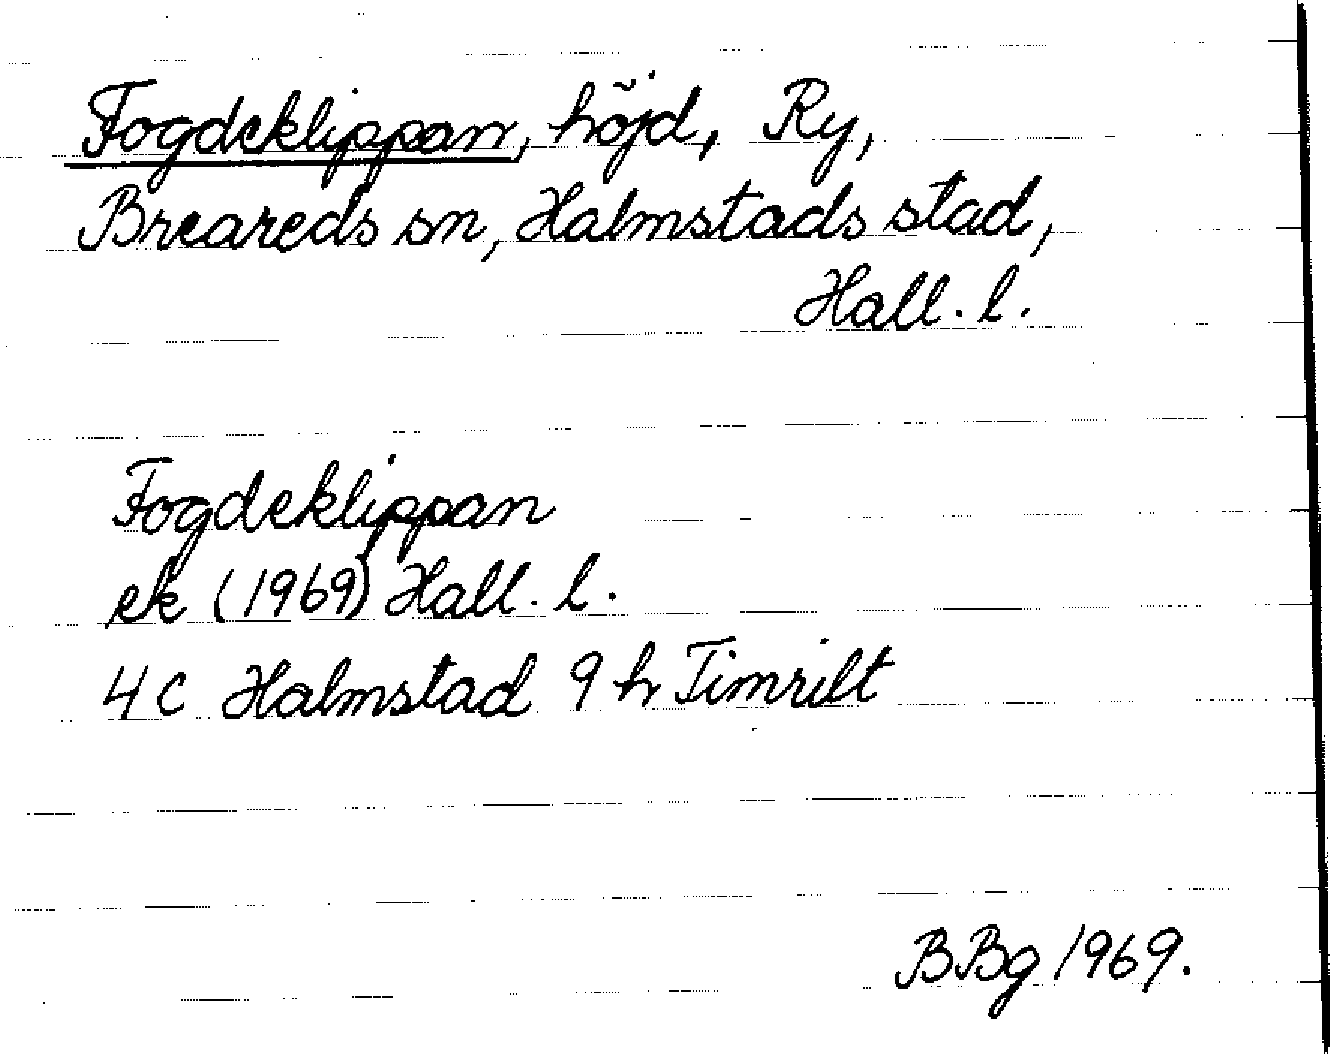 Fogdeklippan, höjd, Ry,
Breareds sn, Halmstads stad,
Hall. l.
Fogdeklippan
ek (1969) Hall. l.
4C Halmstad 9 h Timrilt
BBg 1969.